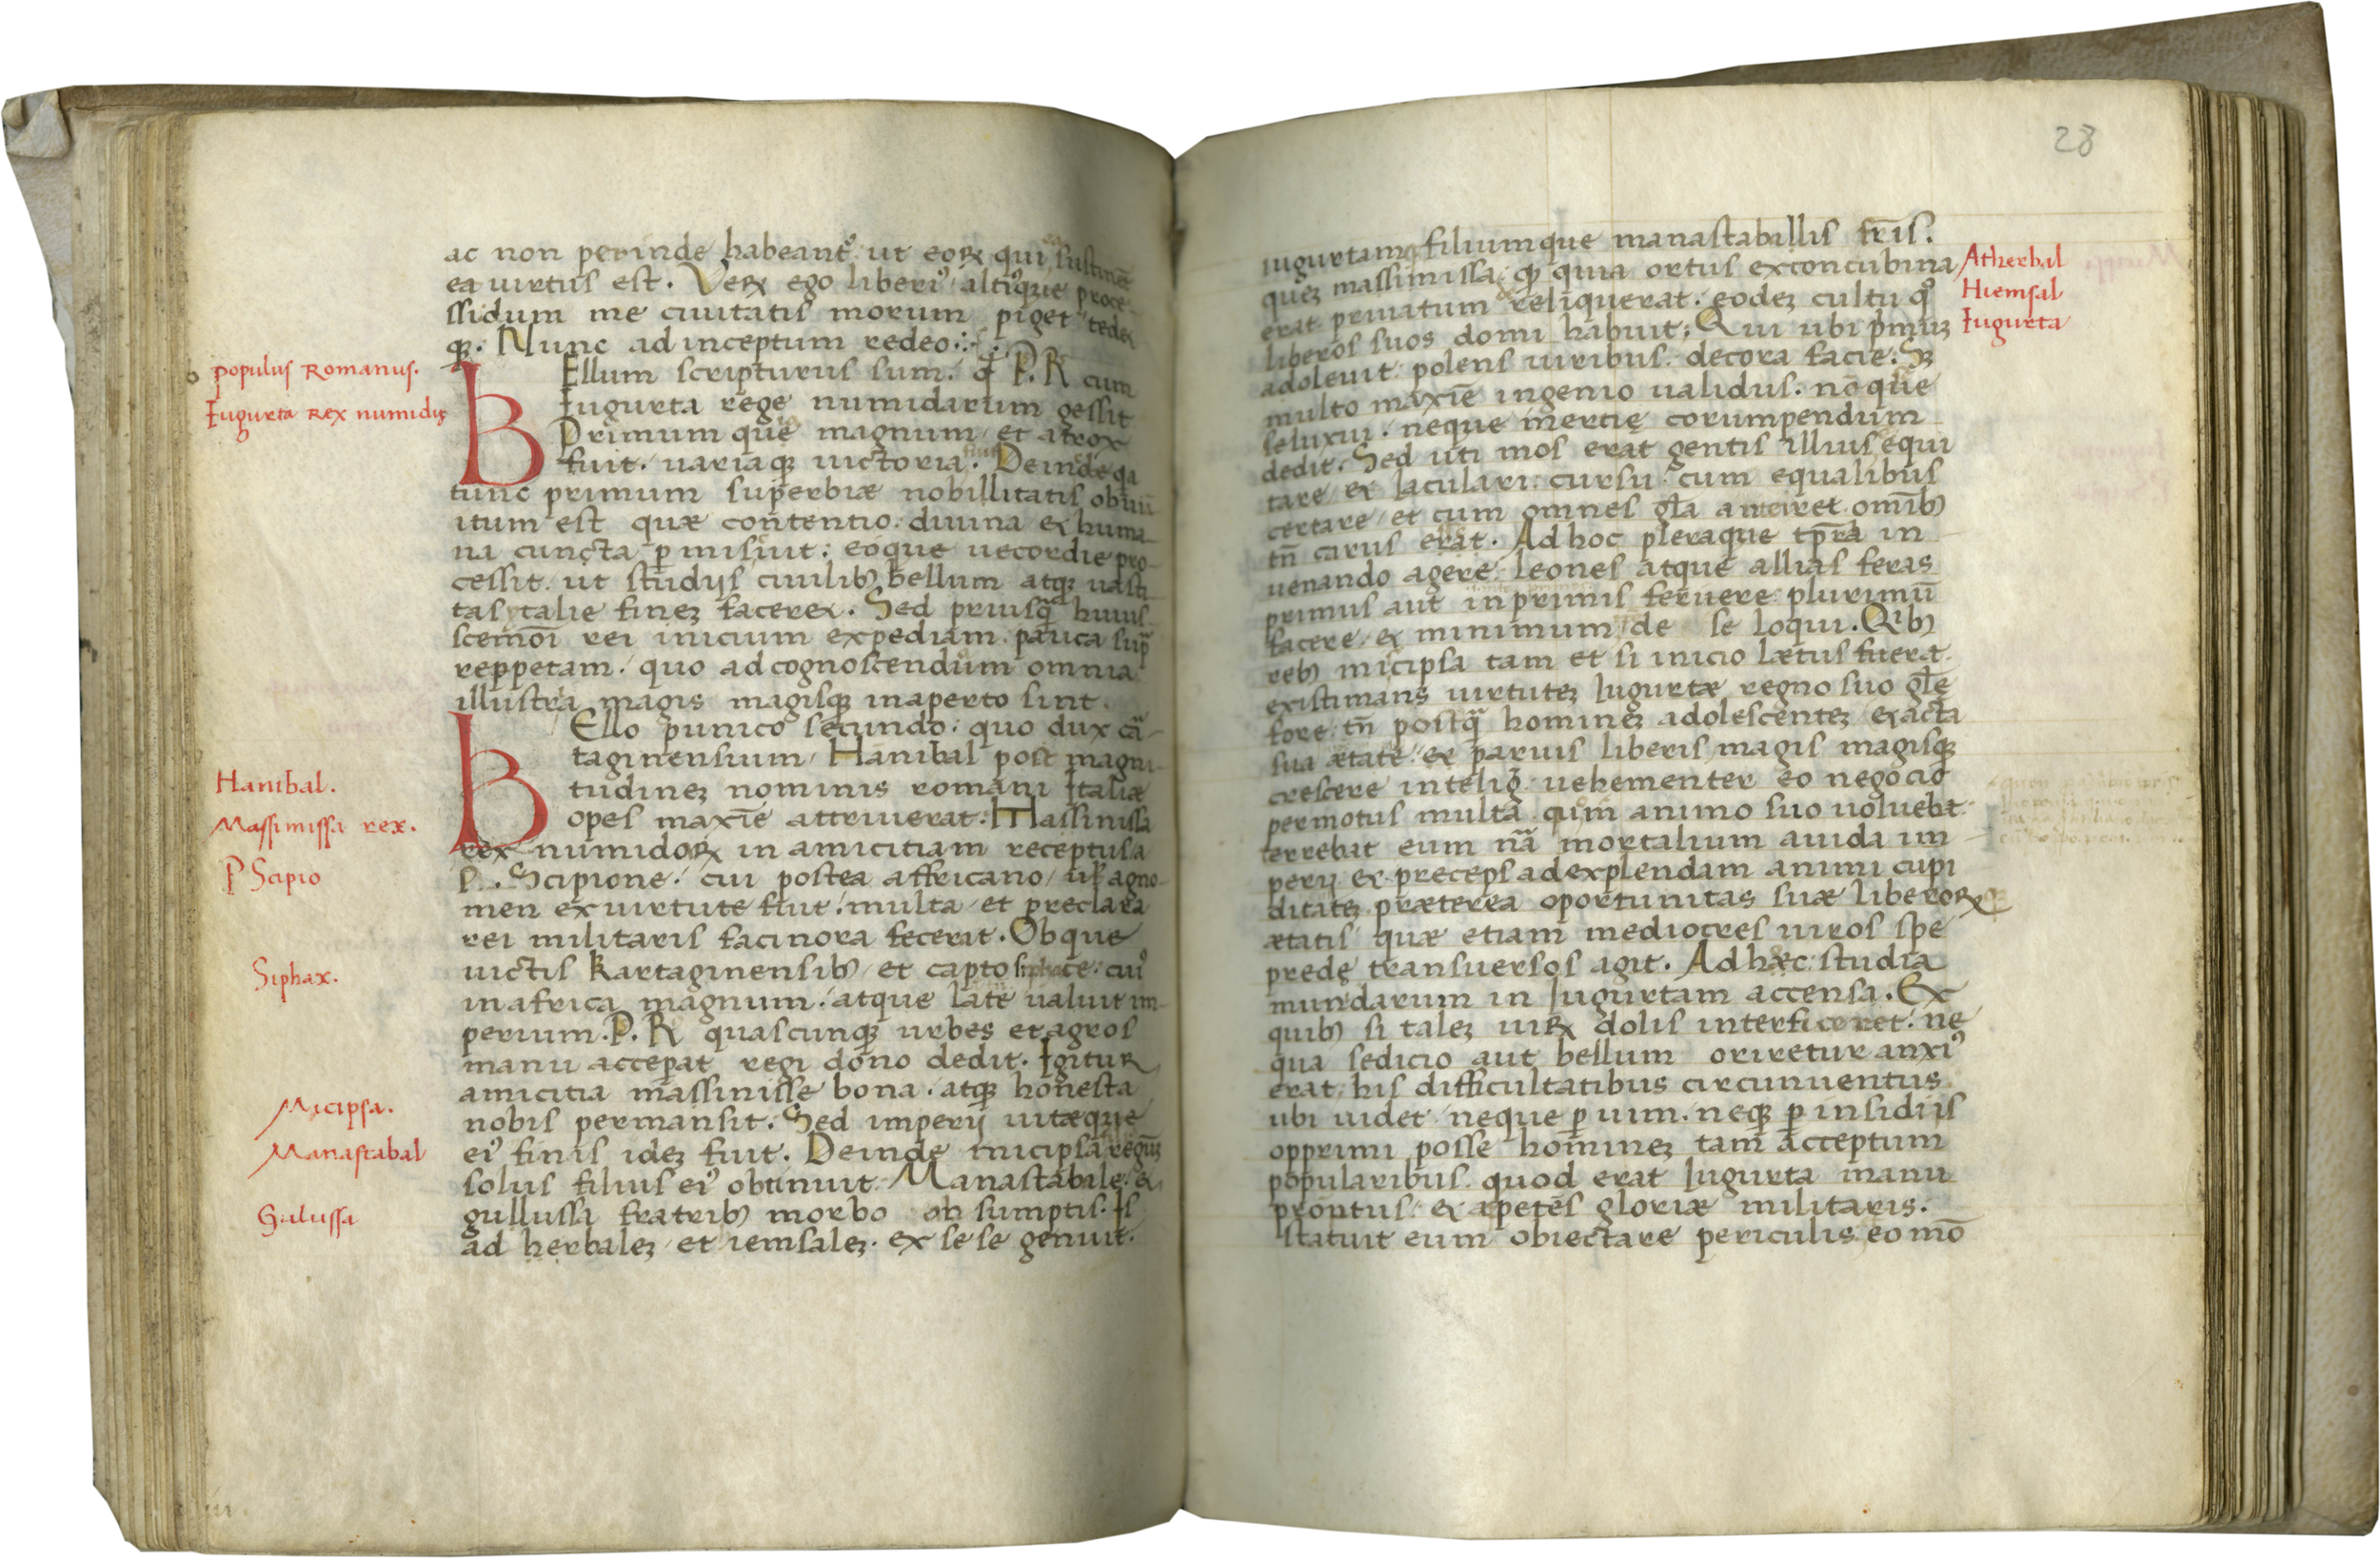 ac non perinde habeantᷣ ut eoꝝ qui ea sustinēt
ea uirtus est. Veꝝ ego liberiꝰ altiꝰque proce-
ssi dum me ciuitatis morum piget tedet
qꝫ. Nunc ad inceptum redeo
populus Romanus.
Iugurta Rex numidię
BEllum scripturus sum. qđ P. R cum
Iugurta rege numidarum gessit
Primum que magnum et atrox
fuit. uariaqꝫ uictoria fuit. Deinde qa
tunc primum superbiæ nobillitatis obuiū
itum est quæ contentio. diuina et huma-
na cuncta ꝑmisiuit: eoque uecordie pro-
cessit. ut studijs ciuilibꝫ bellum atqꝫ uasti-
tas ytalie fineꝫ faceret. Sed priusq̃ huius-
scemōi rei inicium expediam. pauca sup̃
reppetam. quo ad cognoscendum omnia
illustra magis magisqꝫ in aperto sint.
BEllo punico secundo. quo dux ca᷑-
taginensium Hanibal post magni-
tudineꝫ nominis romani Italiæ
opes maxīe attriuerat. Massinissa
rex numidoꝝ in amicitiam receptus a
P. Scipione. cui postea affricano agno-
men ex uirtute fuit. multa et preclara
rei militaris facinora fecerat. Ob que
uictis Kartaginensibꝫ et capto siphace. cuiꝰ
in africa magnum atque late ualuit im-
perium. P. R quascunqꝫ urbes et agros
manu acceꝑat regi dono dedit. Igitur
amicitia massinisse bona. atqꝫ honesta
nobis permansit. Sed imperij uitæque
eiꝰ finis ideꝫ fuit. Deinde micipsa regnuꝫ
solus filius eiꝰ obtinuit. Manastabile et
gullussa fratribꝫ morbo ab sumptis. Is
ad herbaleꝫ et iemsaleꝫ. ex se se genuit.
Hanibal.
Massimissa rex.
P Scipio
Siphax.
Micipsa.
Manastabal
Gulussa
28
iugurtamqꝫ filiumque manastabillis fr̄is.
queꝫ massimissa. qꝫ quia ortus ex concubina
erat priuatum reliquerat. eodeꝫ cultu qͦ
liberos suos domi habuit. Qui ubi pͥmuꝫ
adoleuit polens uiribus. decora facie. Sꝫ
multo maxīe ingenio ualidus. nō que
se luxui. neque inercię corumpendum
dedit. Sed uti mos erat gentis illius equi
tare et Iaculari. cursu cum equalibus
certare et cum omnes gl̄a anteiret. omībꝫ
tn̄ carus erat. Ad hoc pleraque tp̄ra in
uenando agere. Leones atque allias feras
primus aut inprimis feruere plurimū
facere et minimum de se loqui. Qibꝫ
rebꝫ micipsa tam et si inicio lætus fuerat.
existimans uirtuteꝫ Iugurtæ regno suo gl̄e
fore. tn̄ postq̃ homineꝫ adolescenteꝫ exacta
sua ætate. et paruis liberis magis magisqꝫ
crescere intelig̃. uehementer eo negocio
permotus multa cum animo suo uoluebat.
terrebat eum nã mortalium auida im
perij et preceps ad explendam animi cupi
ditateꝫ præterea oportunitas suæ liberoꝝ
ætatis quæ etiam mediocres uiros spe
predę transuersos agit. Ad hæc studia
mundarum in Iugurtam accensa. Ex
quibꝫ si taleꝫ uiꝝ dolis interficeret. ne
qua sedicio aut bellum oriretur anxiꝰ
erat. his difficultatibus circumuentus
ubi uidet neque ꝑ uim. neqꝫ ꝑ insidiis
opprimi posse homineꝫ tam acceptum
popularibus. quod erat Iugurta manu
prontus et apetēs gloriæ militaris.
statuit eum obiectare periculis. eo mō
Atherbal
Hiemsal
Iugurta